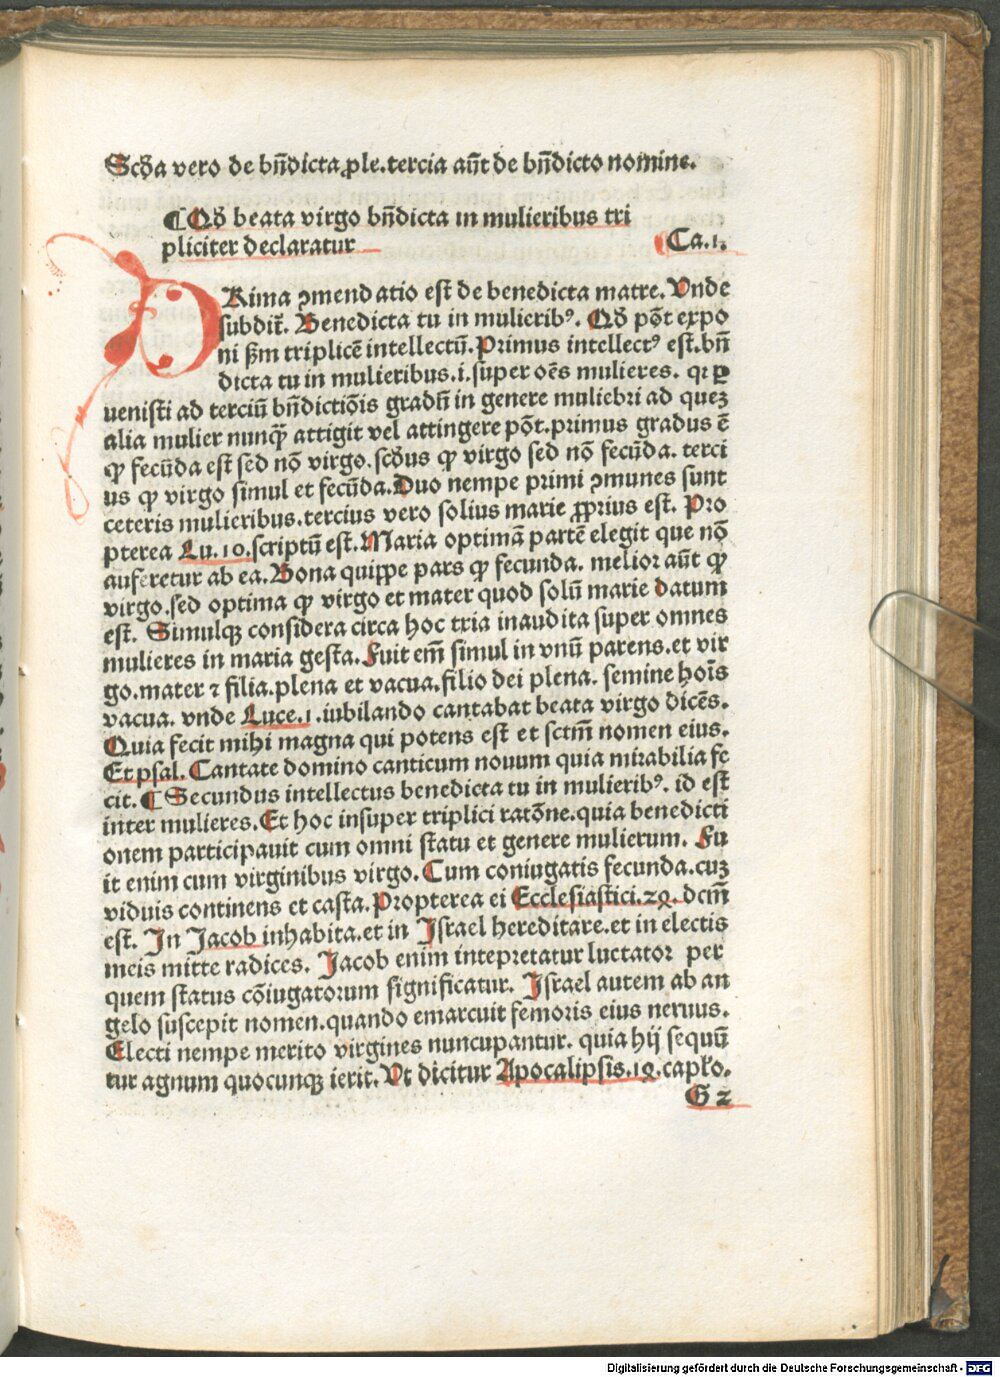 Scd̄a vero de bn̄dicta ꝓle.tercia aūt de bn̄dicto nomine.
¶Qd̄ beata virgo bn̄dicta in mulieribus tri
pliciter declaratur
Ca.i.
PRima ꝯmendatio est de benedicta matre. Vnde
subdit̄. Benedicta tu in mulierib⁹. Qd̄ pōt expo
ni ẜm triplicē intellectū.Primus intellect⁹ est.bn̄
dicta tu in mulieribus.i.super oēs mulieres. qꝛ ꝑ
uenisti ad terciū bn̄dictiōis gradū in genere muliebri ad quez
alia mulier nunqͣ̄ attigit vel attingere pōt.primus gradus ē
ꝙ fecūda est sed nō virgo.scd̄us ꝙ virgo sed nō fecūda. terci
us ꝙ virgo simul et fecūda.Duo nempe primi ꝯmunes sunt
ceteris mulieribus.tercius vero solius marie ꝓprius est. Pro
pterea Lu.10.scriptū est.Maria optimā partē elegit que nō
auferetur ab ea.Bona quippe pars ꝙ fecunda. melior aūt ꝙ
virgo.sed optima ꝙ virgo et mater quod solū marie datum
est. Simulqꝫ considera circa hoc tria inaudita super omnes
mulieres in maria gesta.Fuit em̄ simul in vnū parens.et vir
go.mater ⁊ filia.plena et vacua.filio dei plena. semine hoīs
vacua. vnde Luce.1.iubilando cantabat beata virgo dicēs.
Quia fecit mihi magna qui potens est et sctm̄ nomen eius.
Et psal. Cantate domino canticum nouum quia mirabilia fe
cit. ¶ Secundus intellectus benedicta tu in mulierib⁹. id est
inter mulieres.Et hoc insuper triplici ratōne.quia benedicti
onem participauit cum omni statu et genere mulierum. Fu
it enim cum virginibus virgo.Cum coniugatis fecunda.cuz
viduis continens et casta.Propterea ei Ecclesiastici.24. dcm̄
est. In Jacob inhabita.et in Israel hereditare.et in electis
meis mitte radices. Jacob enim intepretatur luctator per
quem status cōiugatorum significatur. Israel autem ab an
gelo suscepit nomen.quando emarcuit femoris eius neruus.
Electi nempe merito virgines nuncupantur. quia hij sequū
tur agnum quocunqꝫ ierit.Vt dicitur Apocalipsis.14.capło.
G 2
Digitalisierung gefördert durch die Deutsche Forschungsgemeinschaft - DFG